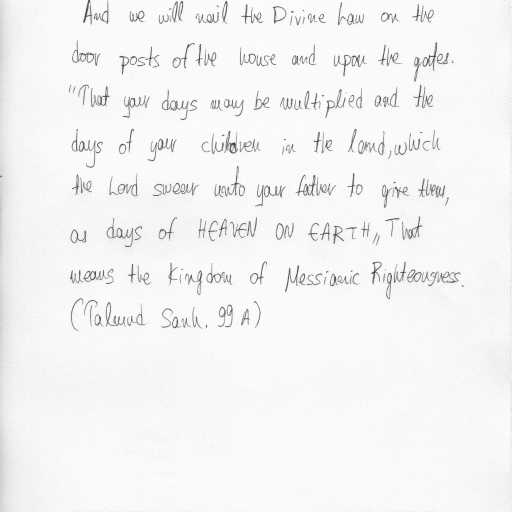 And we will nail the Divine Law on the
door posts of the house and upon the gates.
"That your days may be multiplied and the
days of your children in the land, which
the Lord swear unto your father to give them,
as days of HEAVEN ON EARTH,, That
means the Kingdom of Messianic Righteousness.
(Talmud Sanh. 99 A)